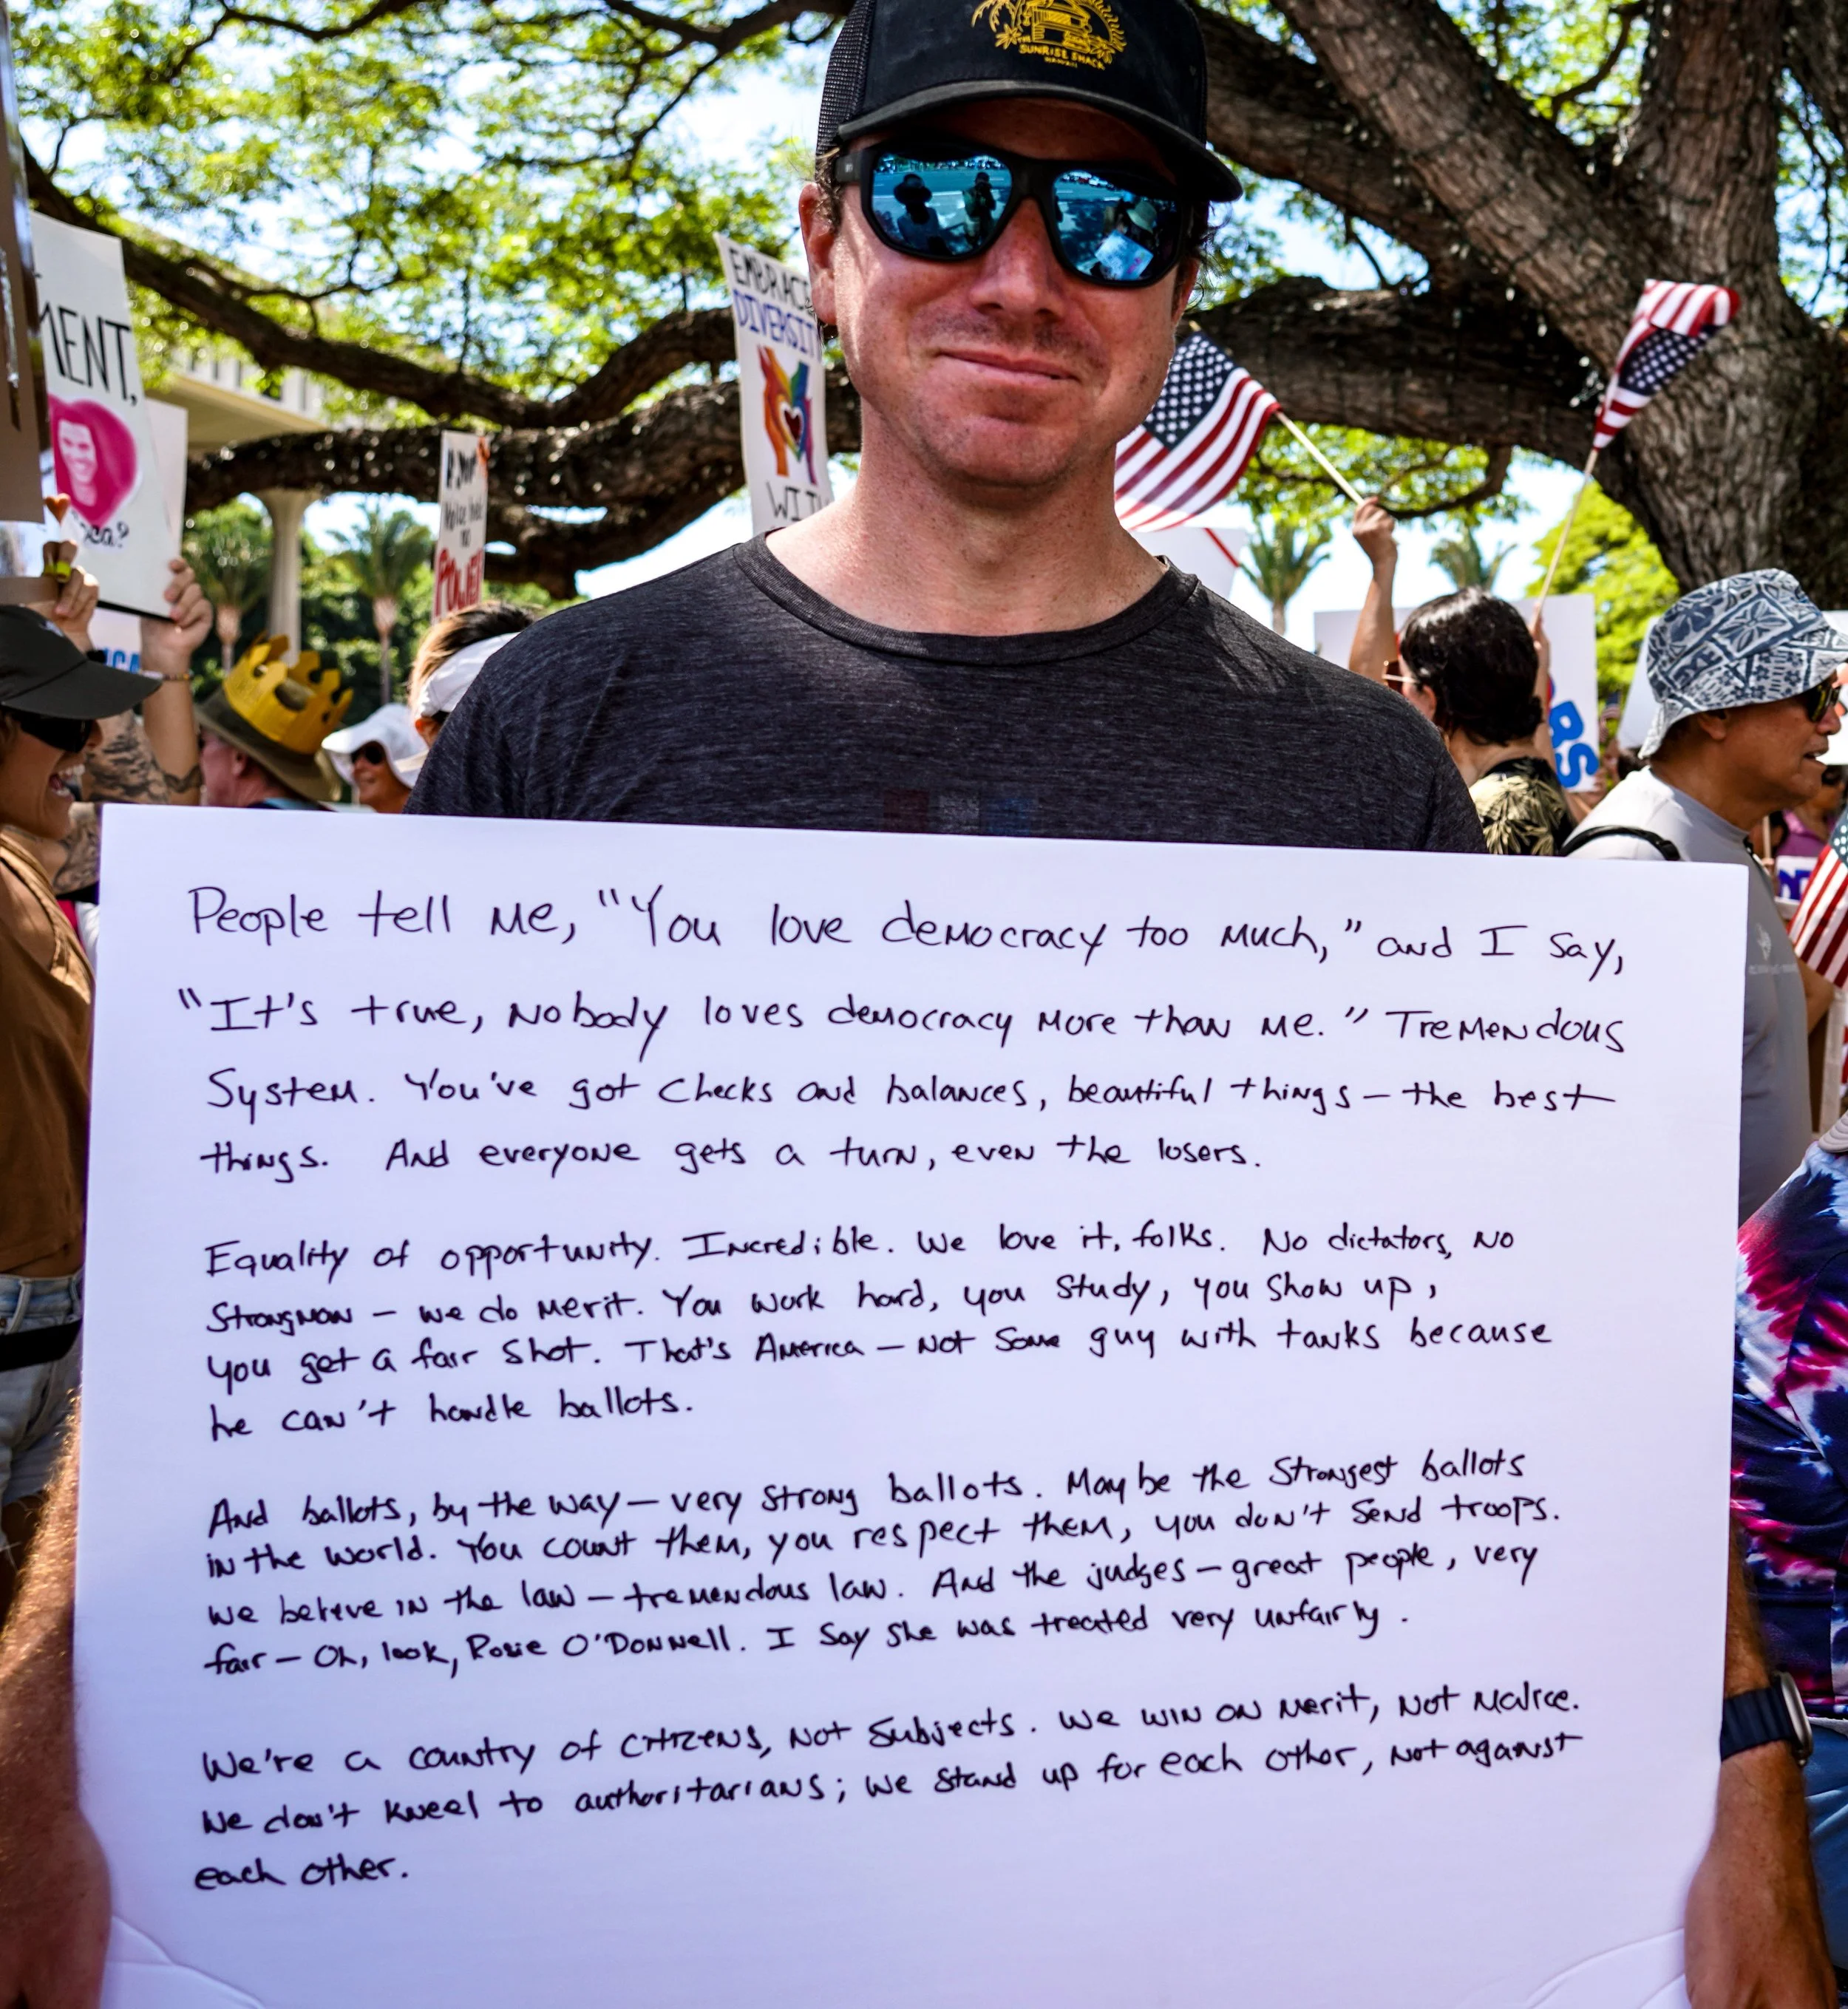 SUNRISE SHACK
HAWAII
EMBRACE
DIVERSITY
WITH
MENT,
POWER
People tell me, "You love democracy too much," and I say,
"It's true, nobody loves democracy more than me." Tremendous
System. You've got checks and balances, beautiful things — the best
things. And everyone gets a turn, even the losers.
Equality of opportunity. Incredible. We love it, folks. No dictators, no
Strongman — we do merit. You work hard, you study, you show up,
you get a fair shot. That's America — not some guy with tanks because
he can't handle ballots.
And ballots, by the way — very strong ballots. Maybe the strongest ballots
in the world. You count them, you respect them, you don't send troops.
We believe in the law — tremendous law. And the judges — great people, very
fair — Oh, look, Rosie O'Donnell. I say she was treated very unfairly.
We're a country of citizens, not subjects. We win on merit, not malice.
We don't kneel to authoritarians; we stand up for each other, not against
each other.